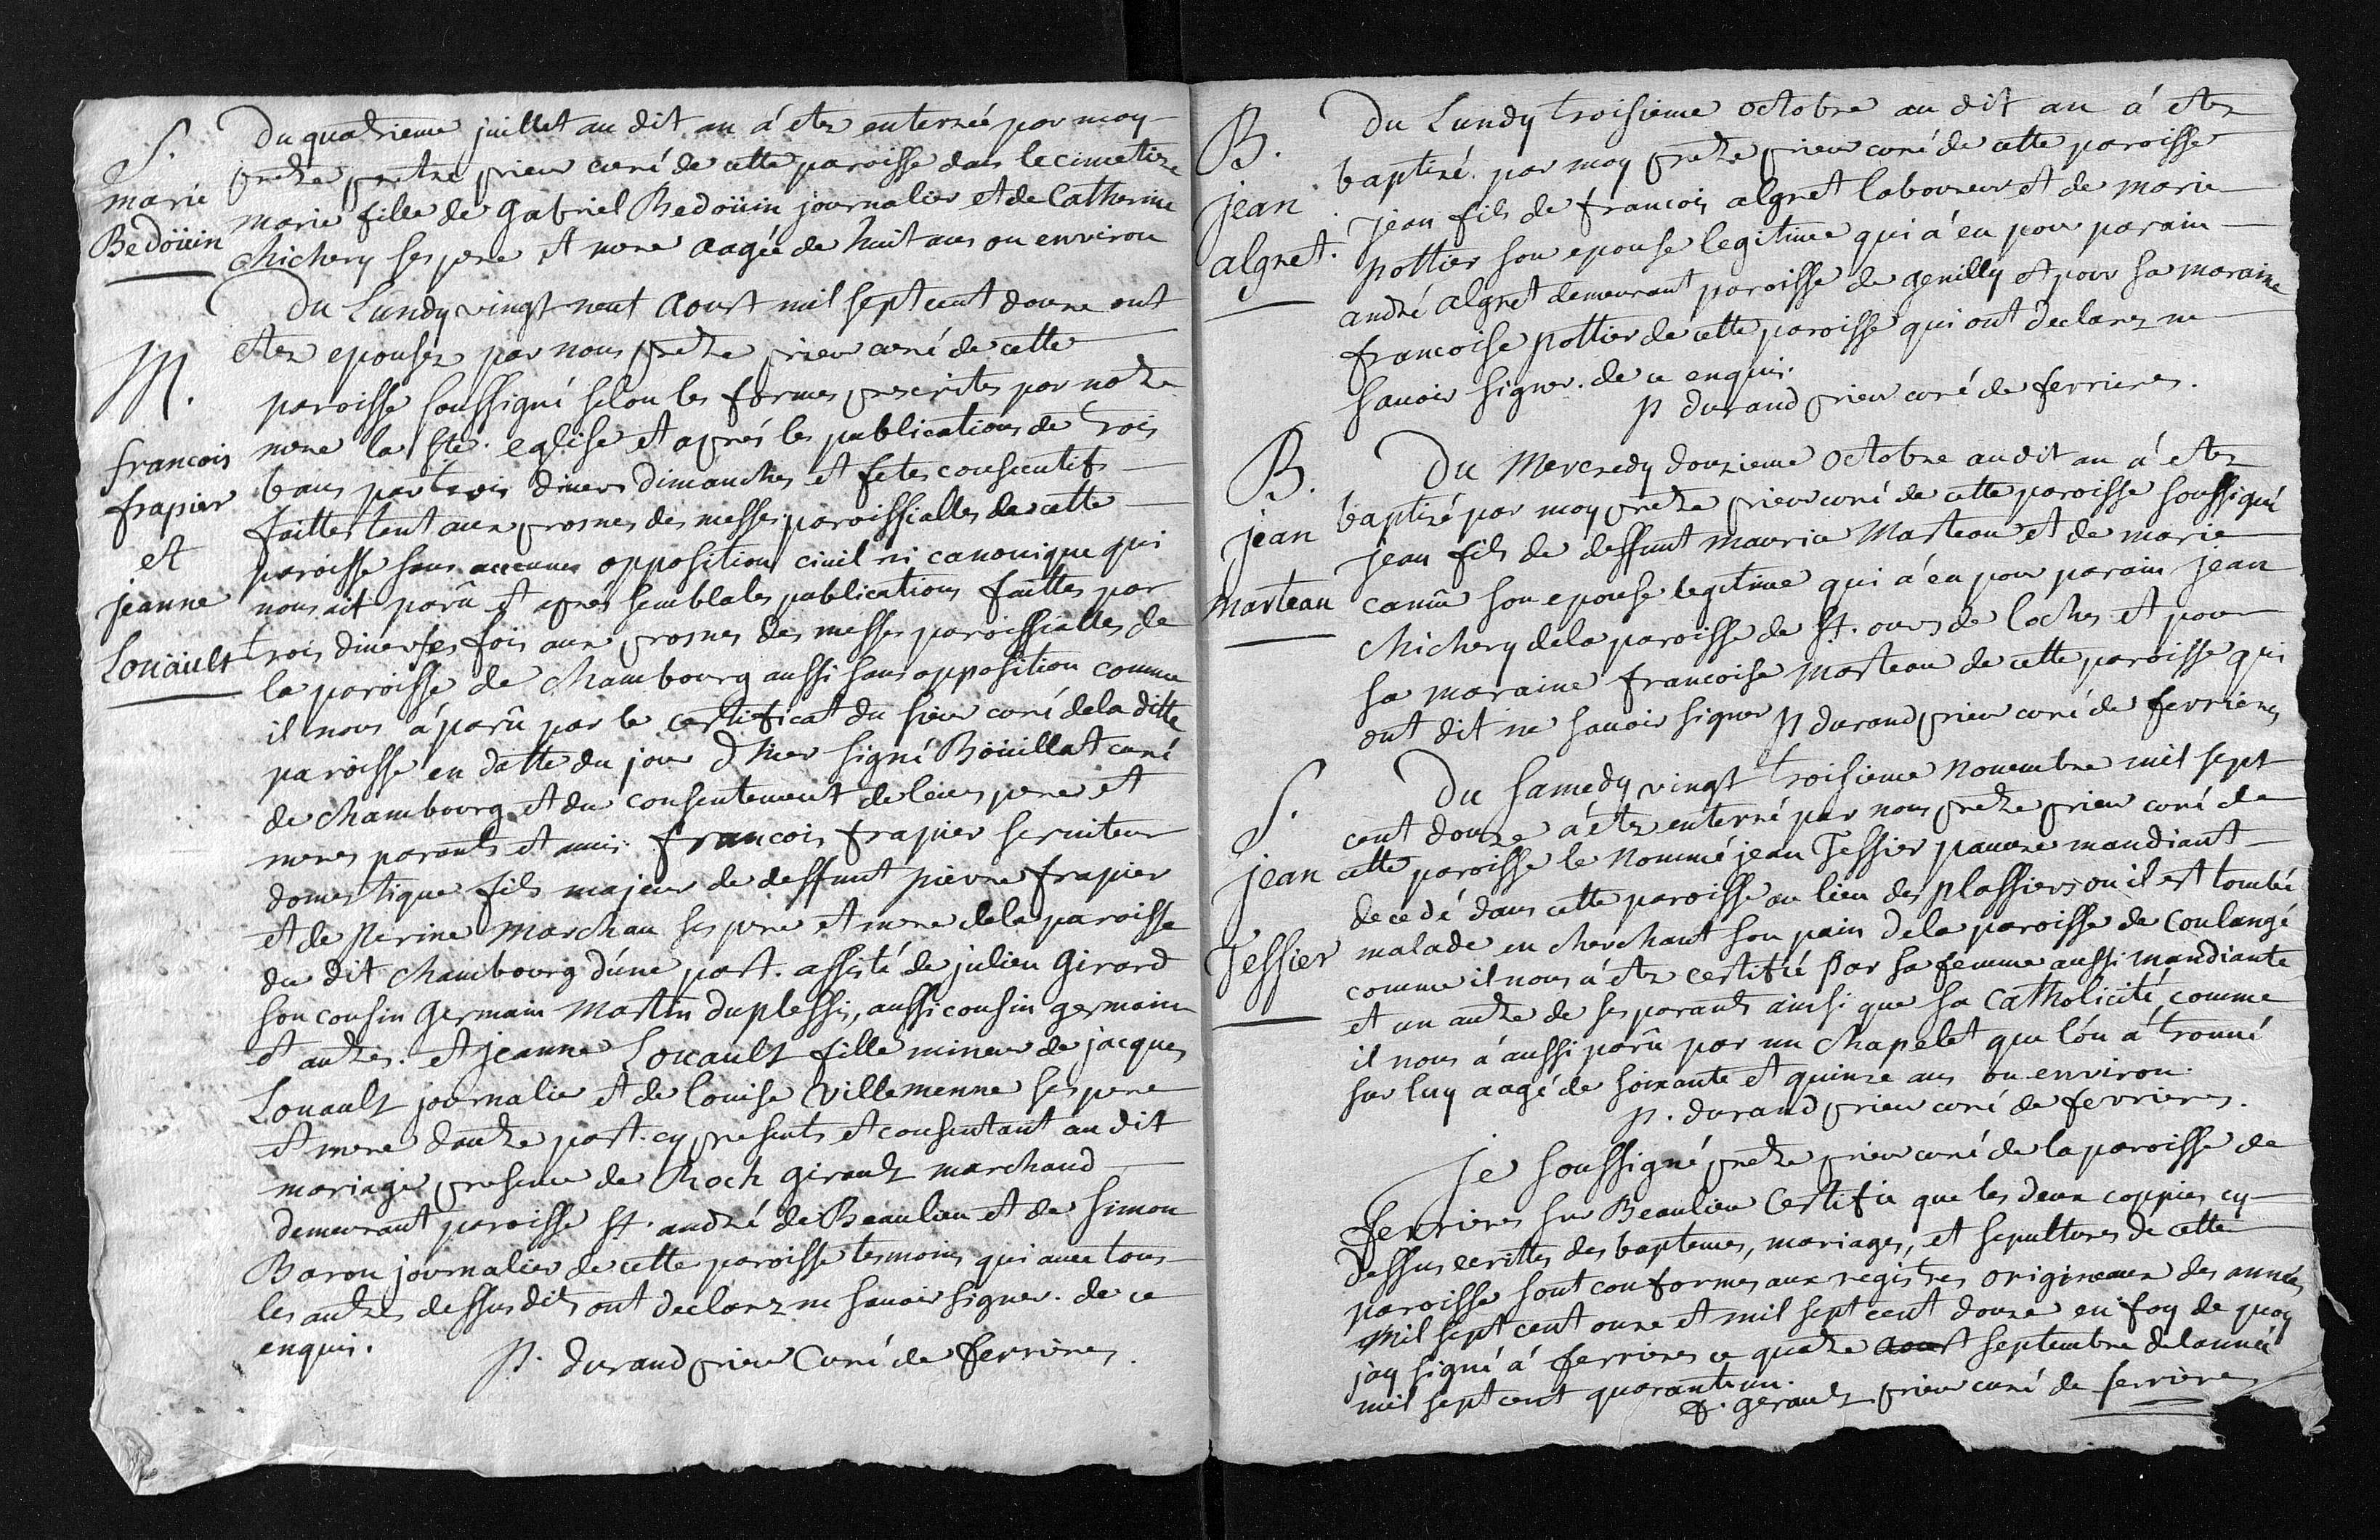 S.
marie
Bedöuin
Du quatrieme juillet au dit an á etez enterrée par moy
pretre pretre prieur curé de cette paroisse dans le cimetire
marie fille de Gabriel Bedöuin journalier et de Catherine
Chichery ses pere et mere aagée de huit ans ou environ
M.
francois
frapier
et
jeanne
Loüault
Du Lundy vingt neuf Aoust mil sept cent douze ont
etez epousez par nous pretre prieur curé de cette
paroisse soussigné selon les formes prescrites par notre
mere la ste. eglise et aprés les publications de trois
bans par trois divers dimanches et fetes consecutifs
faittes tent aux prosnes des messes paroissialles de cette
paroisse sans aucunes opposition civil ni canonique qui
nous ait parû et apres semblables publications faittes par
trois diverses fois aux prosnes des messes paroissialles de
la paroisse de Chambourg aussi sans opposition comme
il nous á parû par le certificat du sieur curé de la ditte
paroisse en datte du jour d'hier signé Böuillat curé
de Chambourg et du consentement de leurs peres et
meres parants et amis francois frapier serviteur
domestique fils majeur de deffunt pierre frapier
et de Perine Marchau ses pere et mere de la paroisse
du dit Chambourg d'úne part. assisté de julien Girard
son cousin Germain Martin duplessis, aussi cousin germain
et autres. et jeanne Louault fille mineur de jacques
Louault journalier et de louise Villemenne ses pere
et mere d'autre part. cy presents et consentant au dit
mariage presence de Roch Girault marchand
demeurant paroisse st. andré de Beaulieu et de Simon
Baron journalier de cette paroisse tesmoins qui avec tous
les autres dessus dits ont declarez ne savoir signer. de ce
enquis.
P. durand prieur Curé de ferrieres.
B.
jean
algret.
Du Lundy troisieme octobre au dit an á etez
baptizé par moy pretre prieur curé de cette paroisse
jean fils de francois algret laboureur et de marie
pottier son epouse legitime qui á eu pour parain
andré algret demeurant paroisse de genilly et pour sa maraine
francoise pottier de cette paroisse qui ont declarez ne
savoir signer. de ce enquis.
P durand prieur curé de ferrieres.
B.
jean
marteau
Du Mercredy douzieme octobre au dit an á etez
baptizé par moy pretre prieur curé de cette paroisse soussigné
jean fils de deffunt maurice Marteau et de marie
camû son epouse legitime qui á eu pour parain jean
Chichery de la paroisse de st. ours de loches et pour
sa maraine francoise Marteau de cette paroisse qui
ont dit ne savoir signer P durand prieur curé de ferrieres
S.
jean
Tessier
Du samedy vingt troisieme novembre mil sept
cent douze á étez enterré par nous pretre prieur curé de
cette paroisse le nommé jean Tessier pauvre mandiant
decedé dans cette paroisse au lieu des plassiers ou il est tombé
malade en cherchant son pain de la paroisse de Coulangé
comme il nous á étez certifié par sa femme aussi mandiante
et un autre de ses parants ainsi que sa Catholicité, comme
il nous á aussi parû par un chapelet que l'ón á trouvé
sur luy aagé de soixante et quinze ans ou environ.
P. durand prieur curé de ferrieres.
Je soussigné pretre prieur curé de la paroisse de
ferrieres sur Beaulieu Certifie que les deux coppies cy
dessus ecrittes des baptemes, mariages, et sepultures de cette
paroisse sont conformes aux registres origineaux des années
mil sept cent onze et mil sept cent douze en foy de quoy
jay signé á ferrieres ce quatre aoust septembre de lanneé
mil sept cent quarantun.
gerault prieur curé de ferrieres